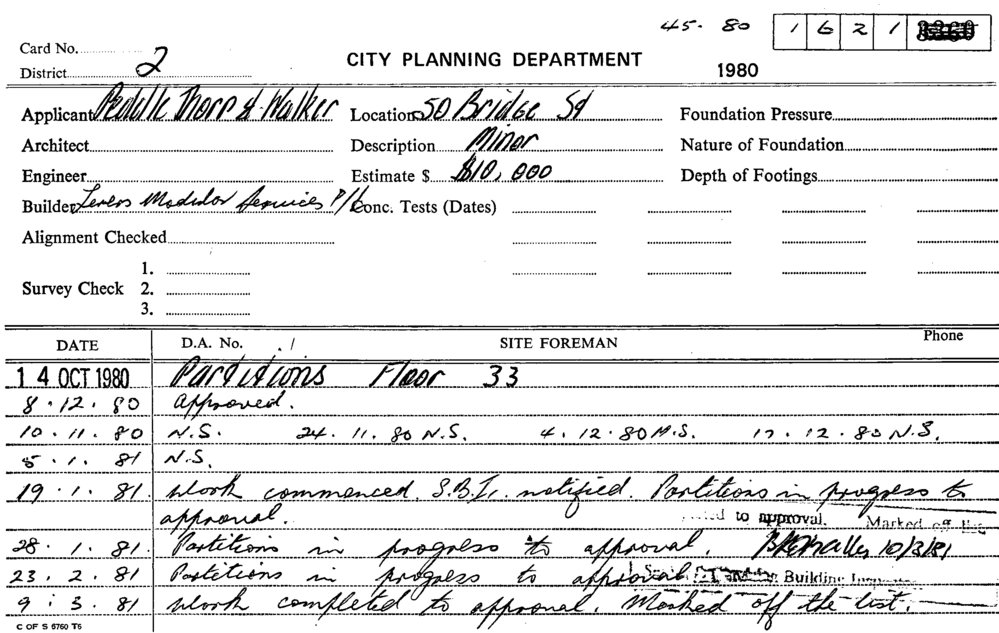 45. 80 1 6 2 1
Card No.
District 2
CITY PLANNING DEPARTMENT
1980
Applicant Peddle Thorp & Walker Location 50 Bridge St Foundation Pressure
Architect Description Minor Nature of Foundation
Engineer Estimate $ $10,000 Depth of Footings
Builder Levers Modular Services P/L Conc. Tests (Dates)
Alignment Checked
Survey Check 1. 2. 3.
DATE D.A. No. SITE FOREMAN Phone
14 OCT 1980 Partitions Floor 33
8.12.80 Approved.
10.11.80 N.S. 24.11.80 N.S. 4.12.80 N.S. 17.12.80 N.S.
5.1.81 N.S.
19.1.81. Work commenced. S.B.I. notified. Partitions in progress to
approval. to approval. Marked off
28.1.81. Partitions in progress to approval. 10/3/81
23.2.81 Partitions in progress to approval. Building
9.3.81 Work completed to approval. Marked off the list.
C OF S 6760 T6